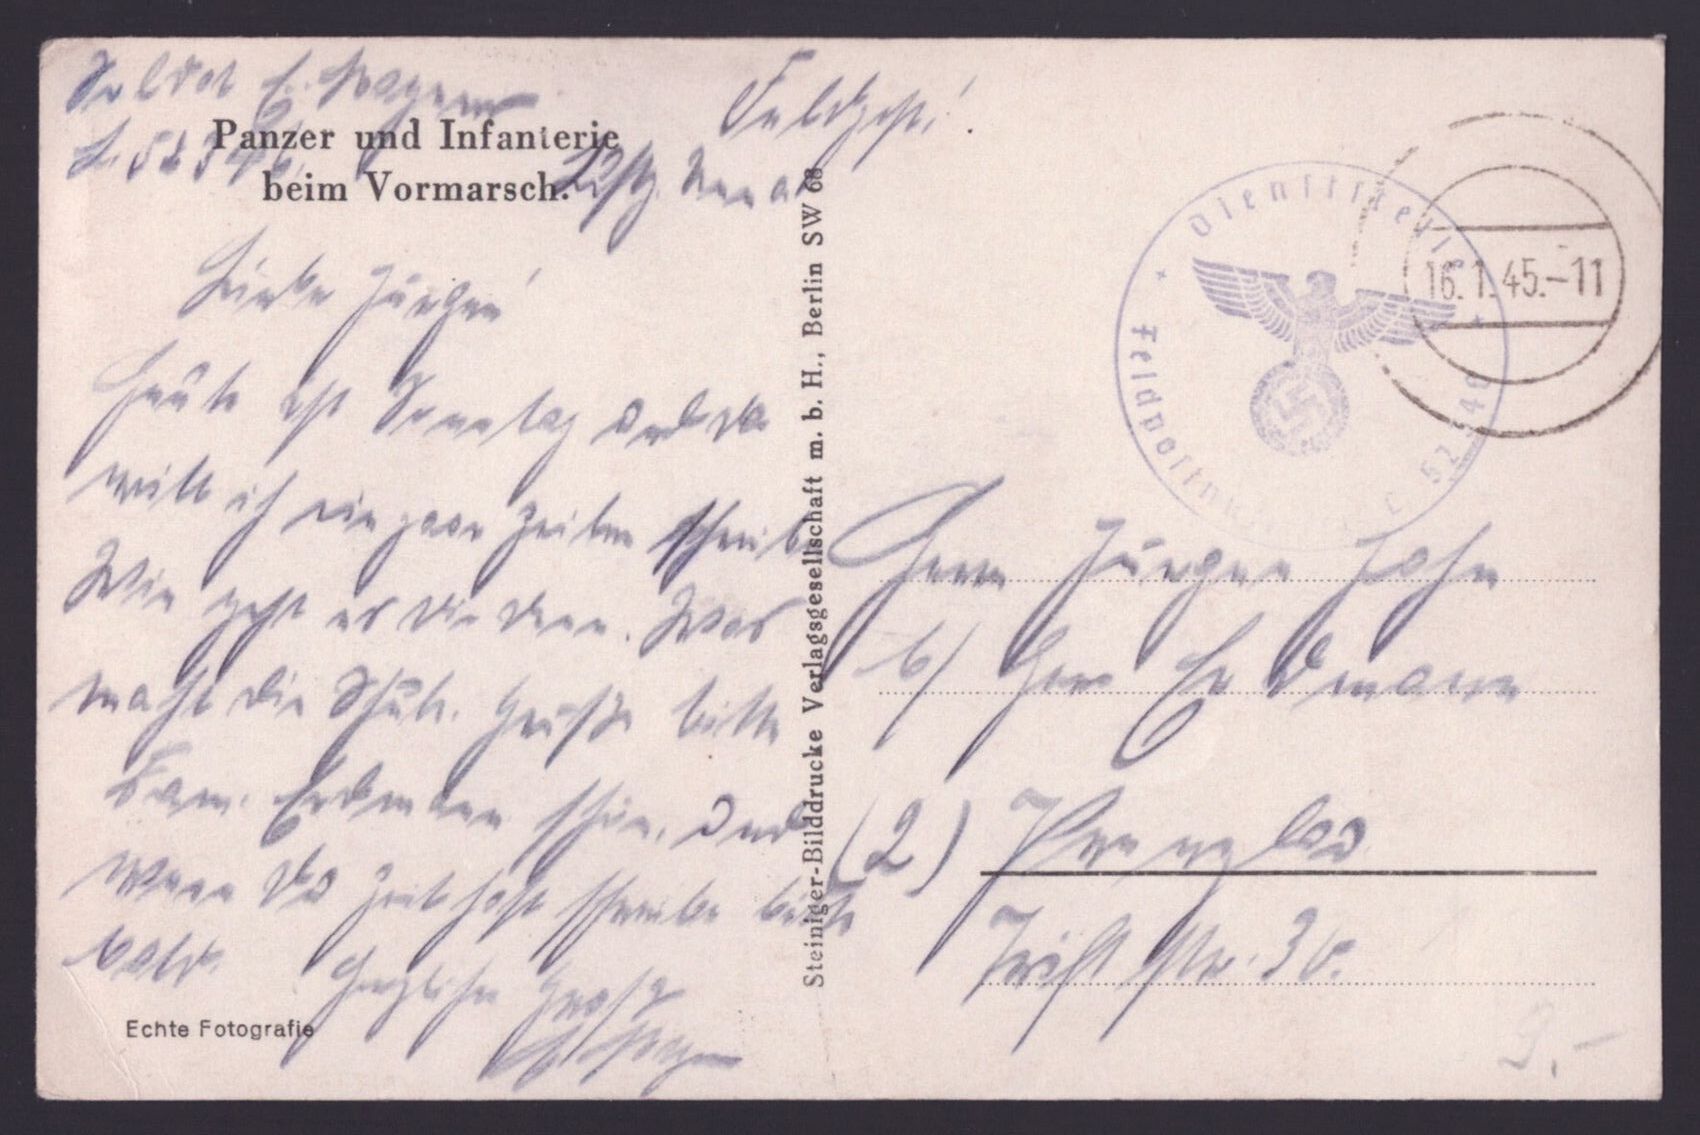 Soldat E. Wagner
L. 52346
Feldpost!
Panzer und Infanterie
beim Vormarsch.
Lieber Jürgen!
Heute ist Sonntag und da
will ich ein paar Zeilen schreib
Wie geht es dir denn. Was
macht die Schule. Grüße bitte
Fam. Erdmann schön. Und
wenn du Zeit hast schreibe bitte
bald. Herzliche Grüße
E. Wagner
Echte Fotografie
Steiniger-Bilddrucke Verlagsgesellschaft m. b. H., Berlin SW 68
Dienststelle
Feldpostnummer L 52346
16.1.45.-11
Herrn Jürgen John
b/ Herr Erdmann
(2) Prenzlau
Triftstr. 36.
9.-